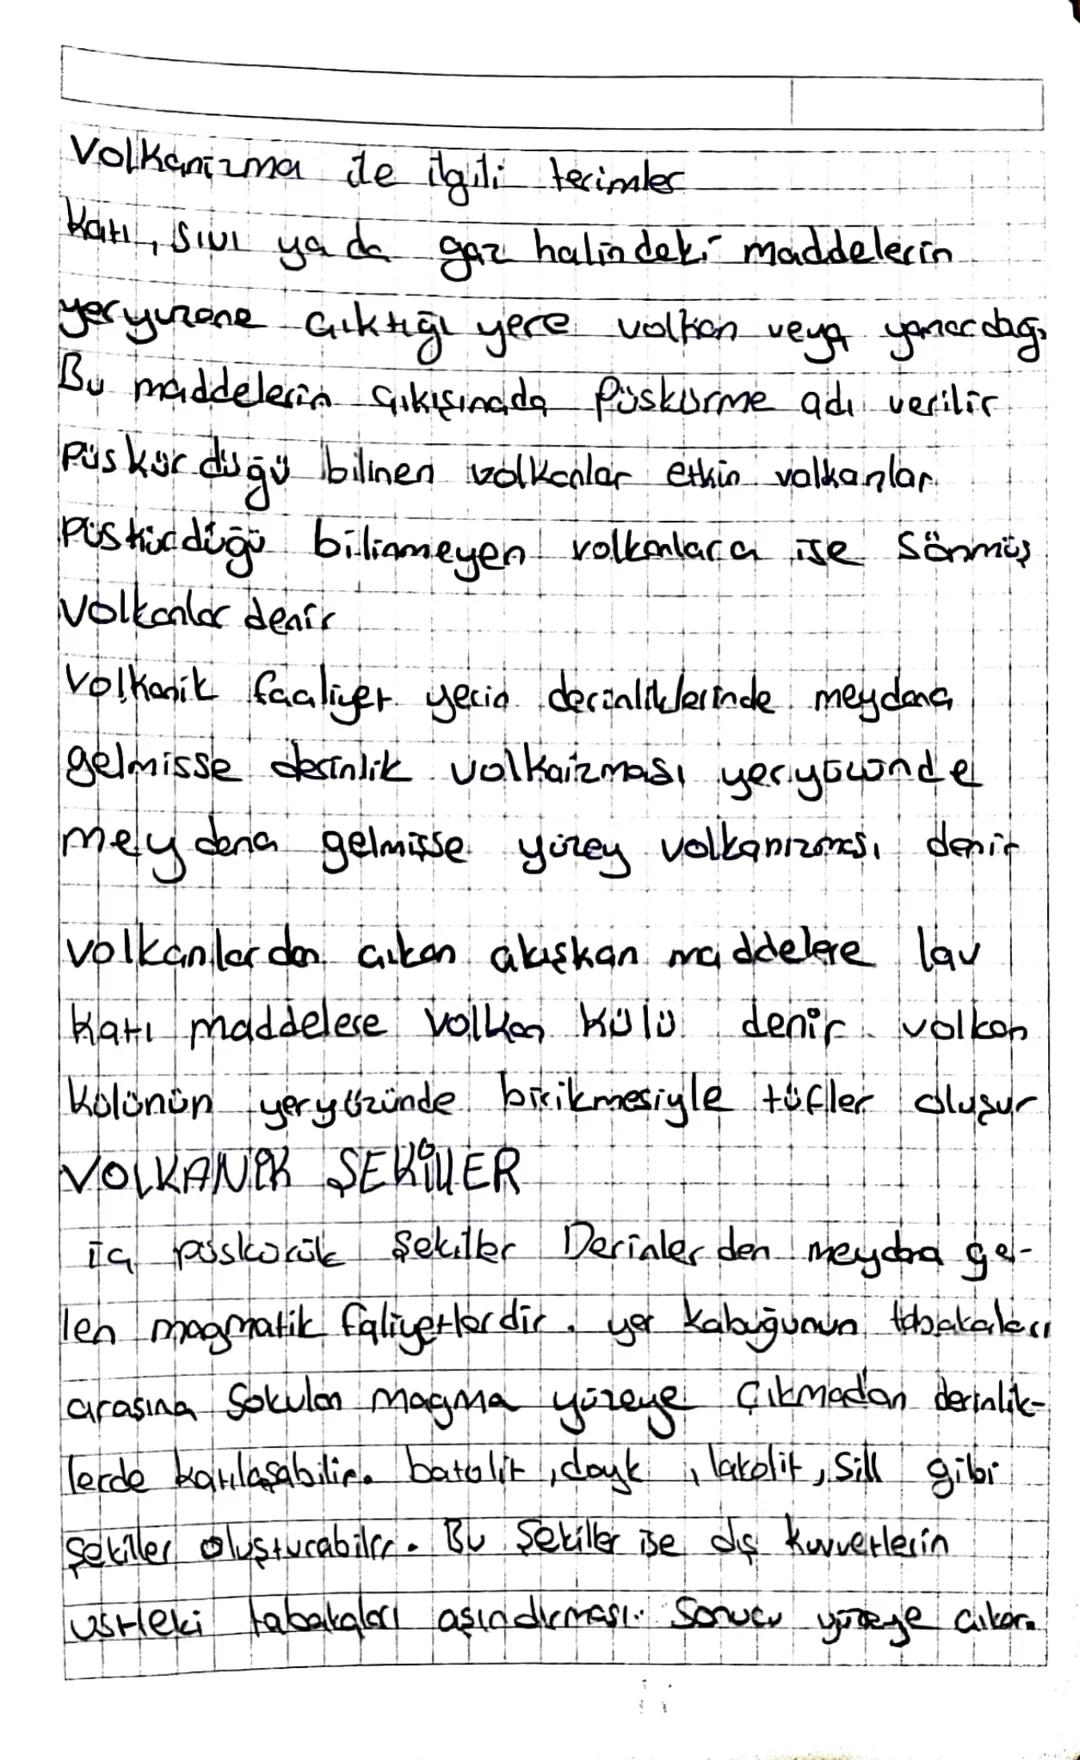 Volkanizma ile ilgili terimler
Katı, Sıvı ya da gaz halindeki maddelerin
yeryüzüne çıktığı yere volkan veya yanardağ,
Bu maddelerin çıkışınada püskürme adı verilir
Püskürdüğü bilinen volkanlar etkin valkanlar
püskürdüğü bilinmeyen volkanlara ise Sönmüş
volkanlar denir
Volkanik faaliyet yerin derinliklerinde meydana
gelmisse derinlik volkaizması yeryüzünde
meydana gelmişse yüzey volkanizması denir
volkanlardan çıkan akışkan maddelere lav
Katı maddelere volkan külü denir. volkan
külünün yeryüzünde birikmesiyle tüfler oluşur
VOLKANİK ŞEKİLLER
İç püskürük Şekiller Derinlerden meydna ge-
len magmatik faliyetlerdir. yer kabuğunun tabakaları
arasına Sokulan magma yüzeye Çıkmadan derinlik-
lerde katılaşabilir. batolit, dayk, lakolit, Sill gibi
şekiller oluşturabilir. Bu Şekiller ise dış kuvvetlerin
üstteki tabakaları aşındırması. Sonucu yüzeye çıkar.